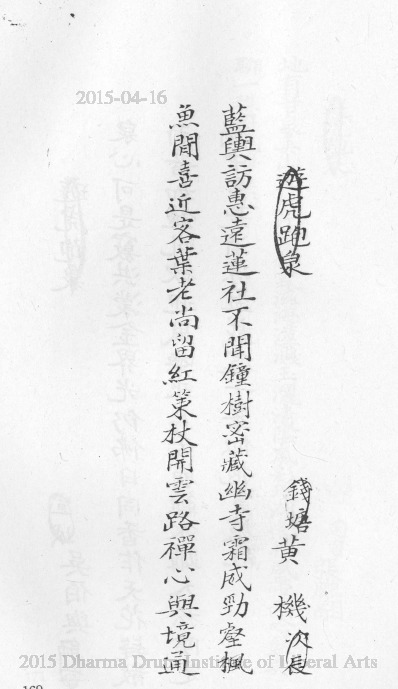 遊虎跑泉
錢塘黃機次辰
藍輿訪惠遠蓮社不聞鐘樹密藏幽寺霜威勁壑楓
魚閒喜近客葉老尚留紅策杖開雲路禪心與境通
2015-04-16
2015 Dharma Drum Institute of Liberal Arts